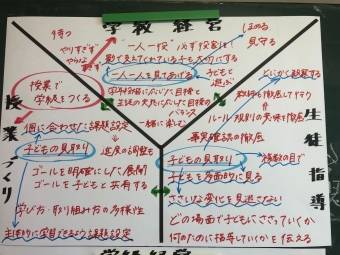 学校経営
待つ
やりすぎず
やらなすぎず
ほめる
見守る
一人一役 必ず役割は!
影で支えてくれている子も大切にする
一人一人を見てあげる
子どもと遊ぶ
生徒の実態に応じた目標
バランス
一緒に楽しむ
授業で
学級をつくる
授業づくり
個に合わせた課題設定
子どもの見取り
進度の調整も
ゴールを明確にした展開
ゴールを子どもと共有する
学び方・取り組み方の多様性
主体的に学習できるような課題設定
生徒指導
とにかく観察する
教師も徹底してやる
ルール・規則の実態を徹底
事実確認の徹底
子どもの見取り
複数の目で
子どもを多面的に見る
ささいな変化を見逃さない
どの場面で子どもにささっていくか
何のために指導していくかを伝える
学級経営